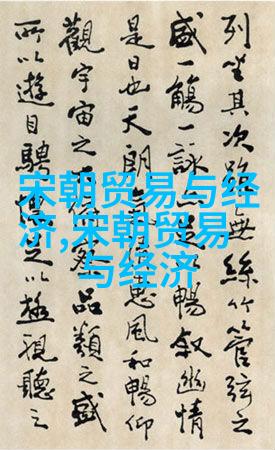 宋朝贸易与经
济,宋朝贸易
与经济
列坐其次雖無絲竹管弦之
盛一觴一詠足以暢叙幽情
是日也天朗氣惠風和暢仰
觀宇宙之品類之盛
所以遊目騁以極視聽之